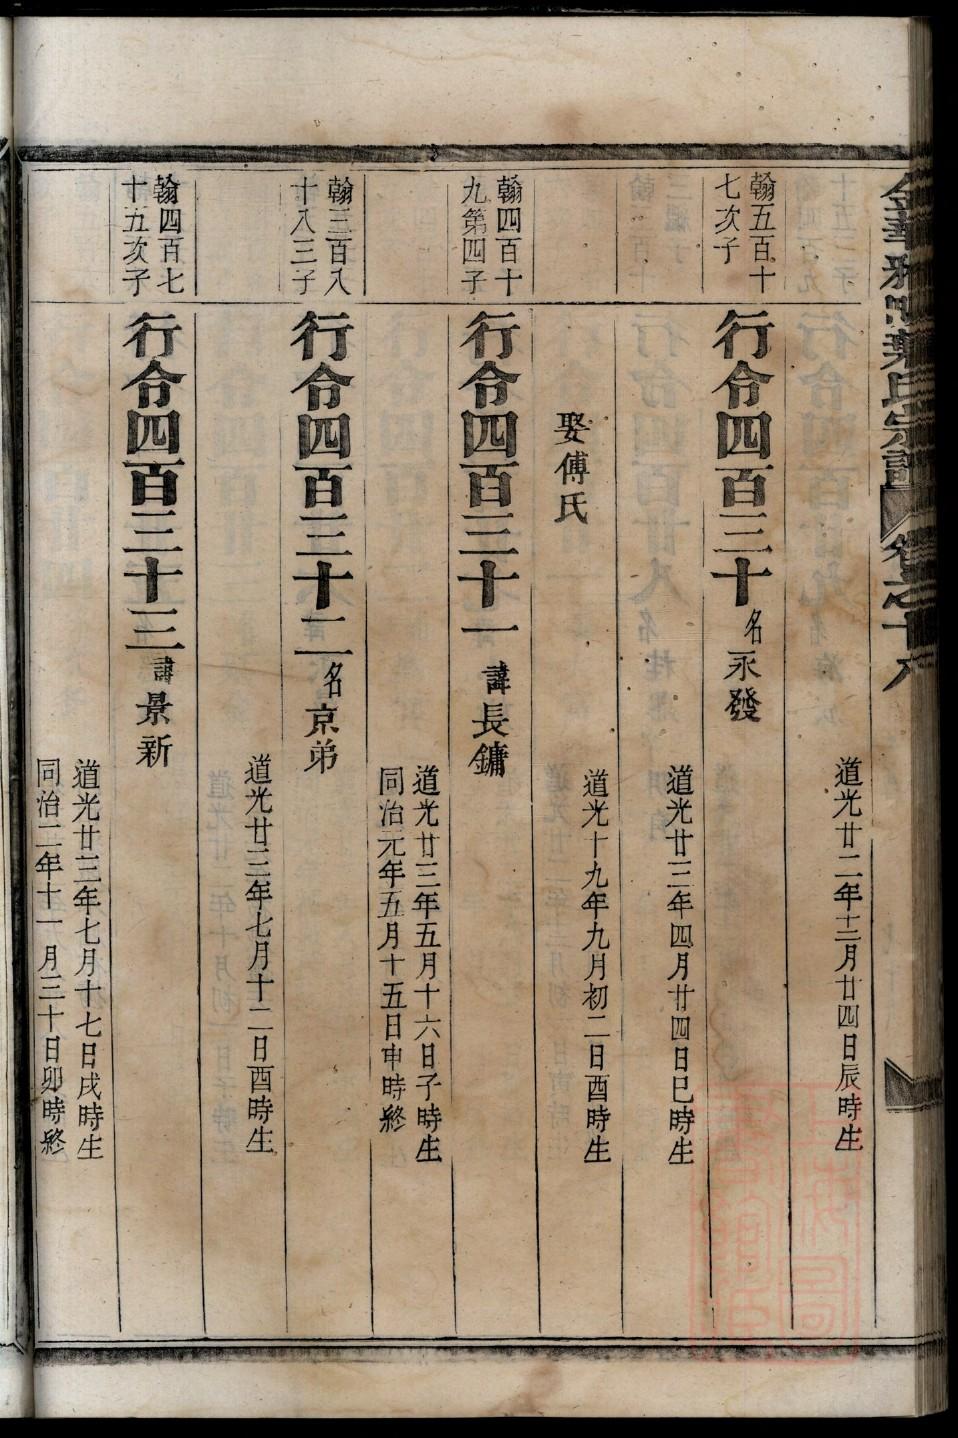 葉氏宗譜 卷之十八
道光廿二年十二月廿四日辰時生
翰五百十
七次子
行令四百三十 名永發
道光廿三年四月廿四日巳時生
娶傅氏
道光十九年九月初二日酉時生
翰四百十
九第四子
行令四百三十一 諱長鏞
道光廿三年五月十六日子時生
同治元年五月十五日申時終
翰三百八
十八三子
行令四百三十二 名京弟
道光廿三年七月十二日酉時生
翰四百七
十五次子
行令四百三十三 諱景新
道光廿三年七月十七日戌時生
同治二年十一月三十日卯時終